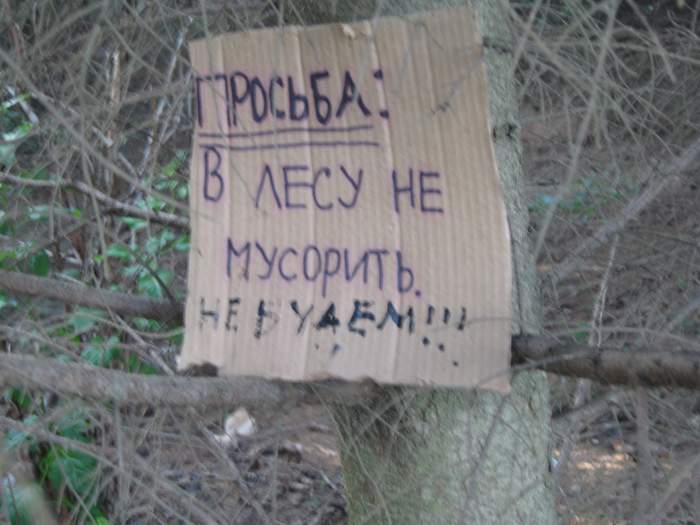 ПРОСЬБА:
В ЛЕСУ НЕ
МУСОРИТЬ.
НЕ БУДЕМ!!!